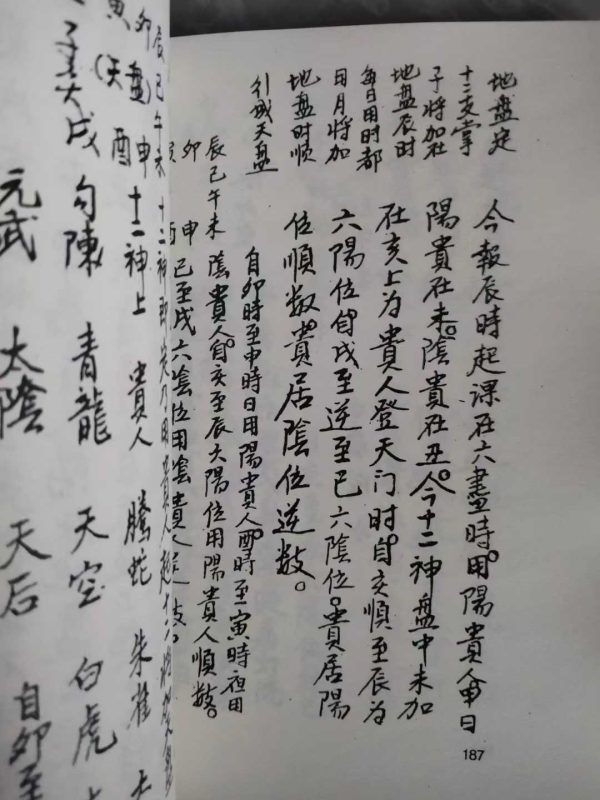 地盘定
十二支掌
子将加在
地盘辰时
每日用时都
用月将加
地盘时顺
引成天盘
今報辰時起課在六晝時。用陽貴人甲日
陽貴在未。陰貴在丑。今十二神盘中未加
在亥上为貴人登天门时。自亥順至辰为
六陽位自戌至逆至巳六陰位。貴居陽
位順数。貴居陰位逆数。
自卯時至申時日用陽貴人。酉時至寅時夜用
陰貴人。自亥至辰六陽位用陽貴人順数。
巳至戌六陰位用陰貴人
辰巳午未
卯 申
寅 酉
187
辰巳午未
卯 申 十二神上 貴人 騰蛇 朱雀
寅 (天盘) 酉
戌 勾陳 青龍 天空 白虎
元武 太陰 天后 自卯至